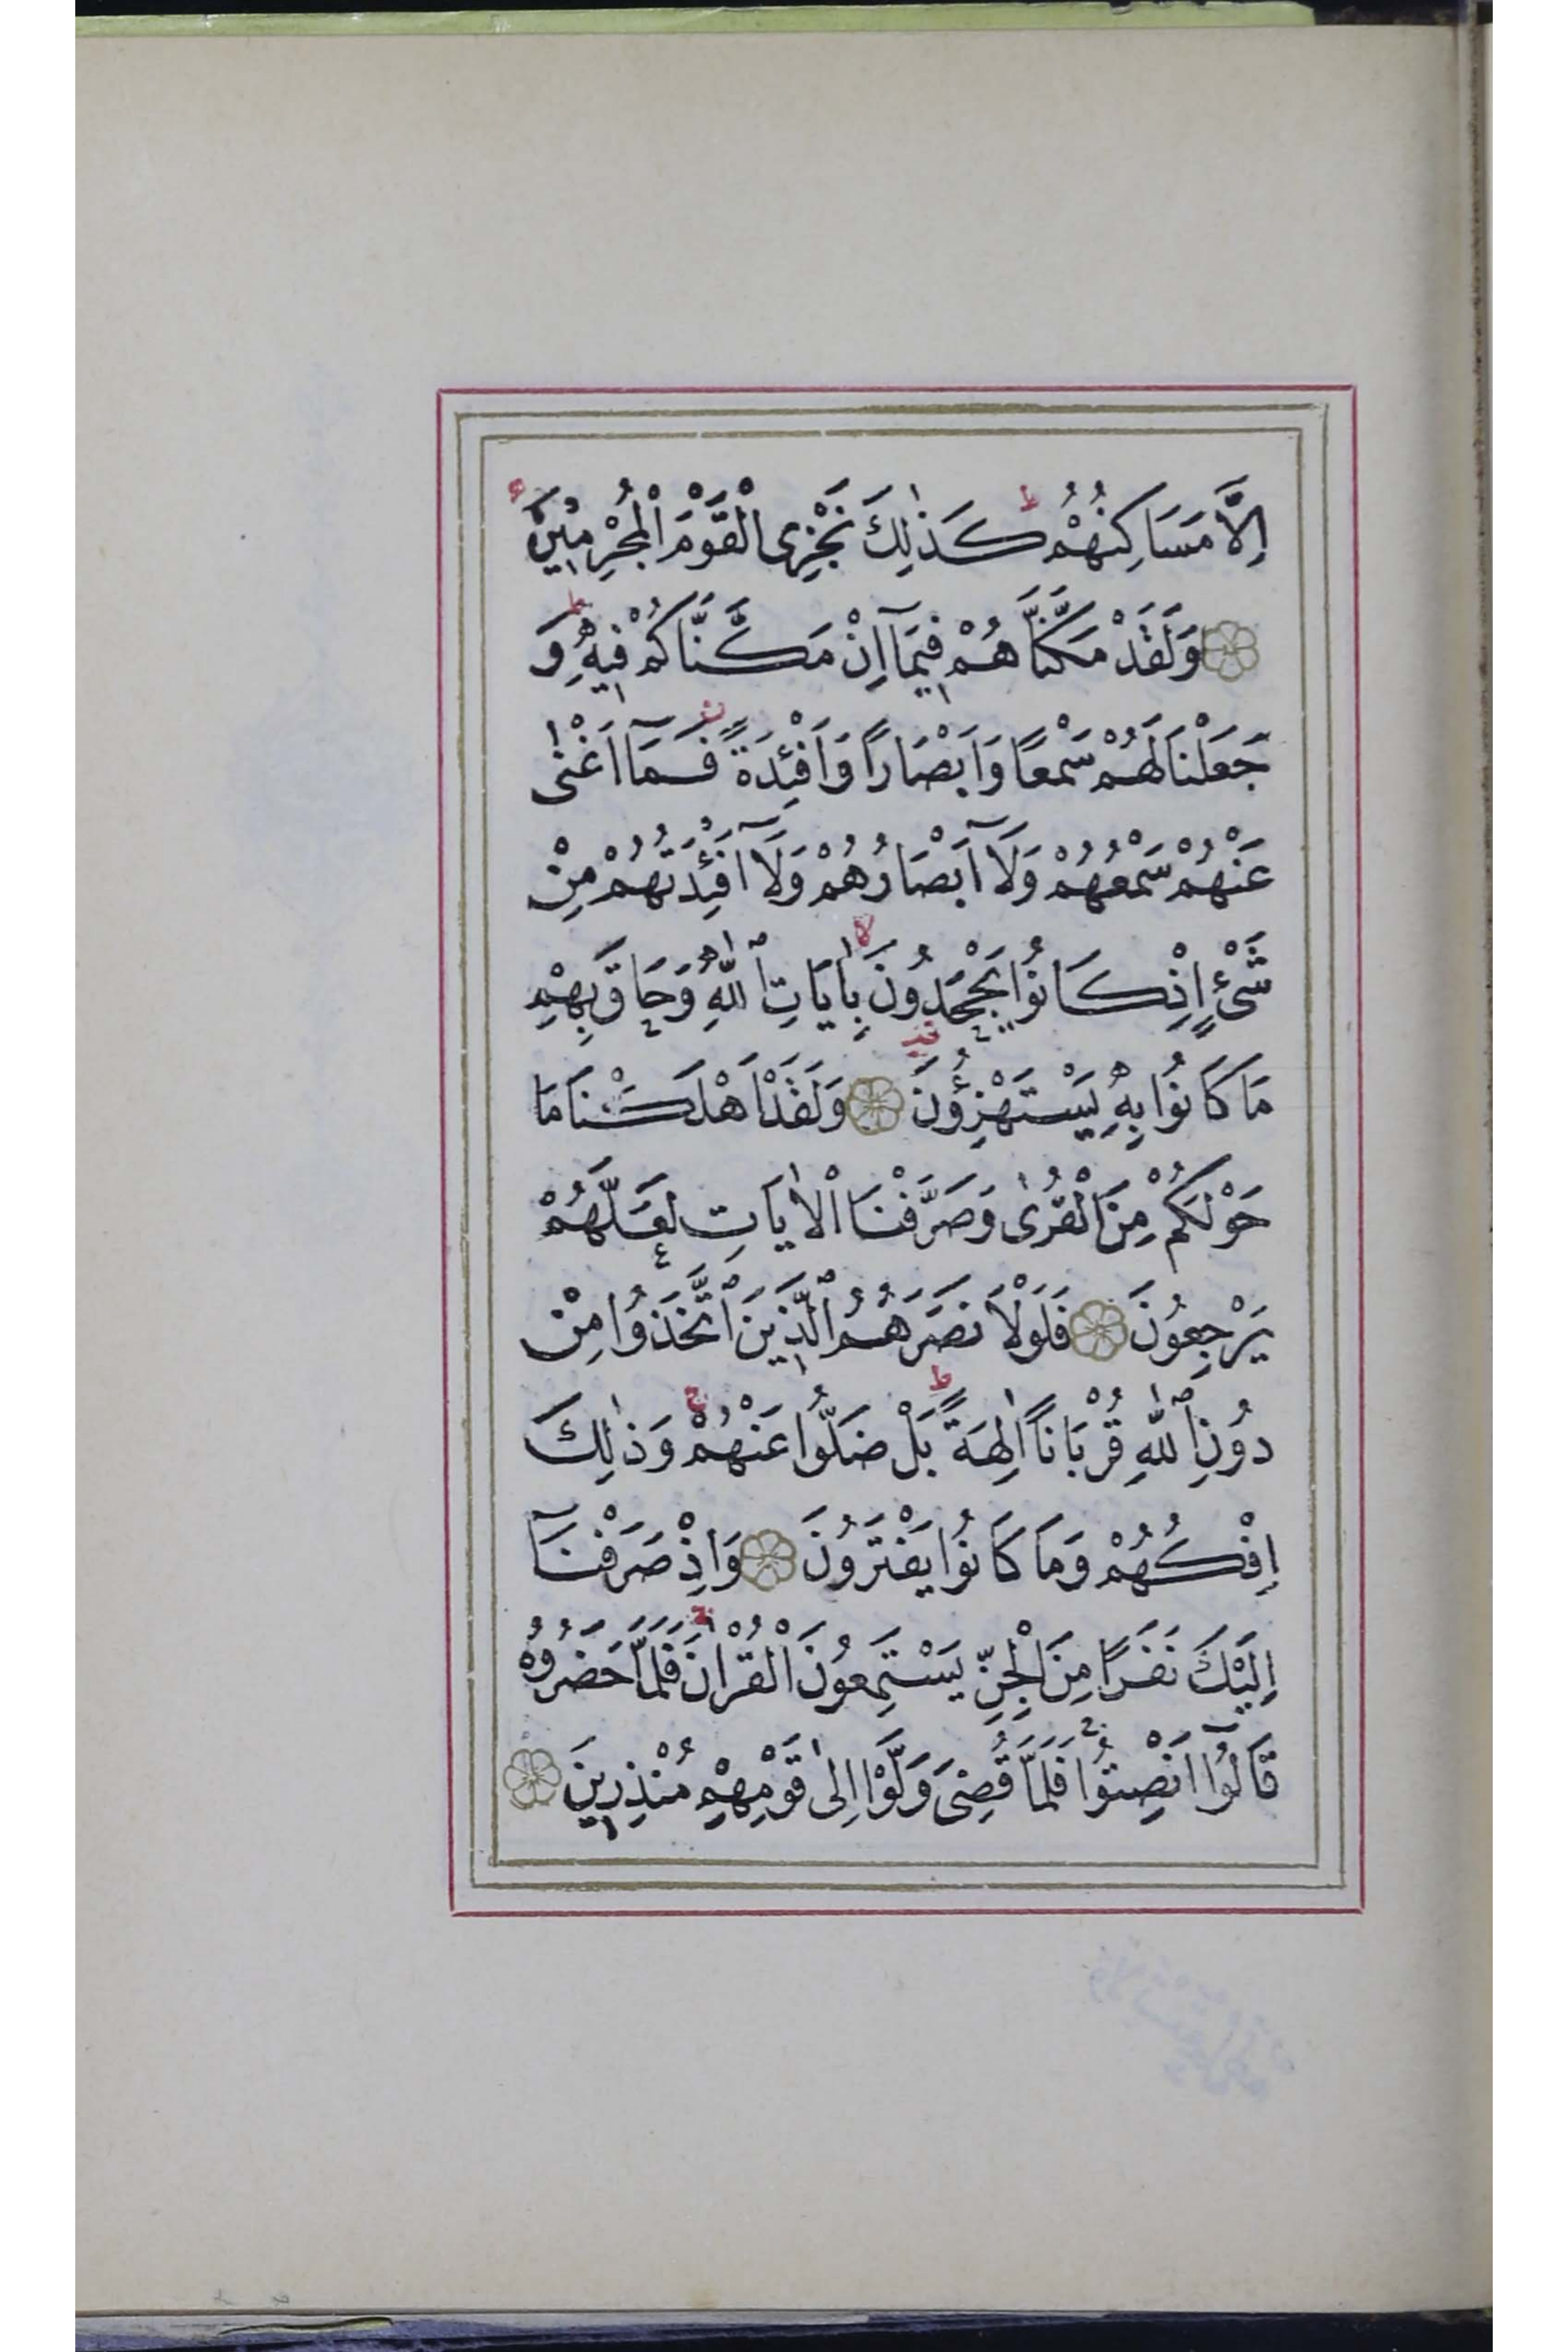 اِلَّا مَسَاكِنُهُمْ ط كَذٰلِكَ نَجْزِى الْقَوْمَ الْمُجْرِمِينَ
وَلَقَدْ مَكَّنَّاهُمْ فِيمَآ اِنْ مَكَّنَّاكُمْ فِيهِ ط وَ
جَعَلْنَا لَهُمْ سَمْعًا وَاَبْصَارًا وَاَفْئِدَةً فَمَآ اَغْنٰى
عَنْهُمْ سَمْعُهُمْ وَلَآ اَبْصَارُهُمْ وَلَآ اَفْئِدَتُهُمْ مِنْ
شَىْءٍ اِذْ كَانُوا يَجْحَدُونَ لا بِاٰيَاتِ اللّٰهِ وَحَاقَ بِهِمْ
مَا كَانُوا بِهِ يَسْتَهْزِؤُنَ وَلَقَدْ اَهْلَكْنَا مَا
حَوْلَكُمْ مِنَ الْقُرٰى وَصَرَّفْنَا الْاٰيَاتِ لَعَلَّهُمْ
يَرْجِعُونَ فَلَوْلَا نَصَرَهُمُ الَّذِينَ اتَّخَذُوا مِنْ
دُونِ اللّٰهِ قُرْبَانًا اٰلِهَةً ط بَلْ ضَلُّوا عَنْهُمْ ج وَذٰلِكَ
اِفْكُهُمْ وَمَا كَانُوا يَفْتَرُونَ وَاِذْ صَرَفْنَآ
اِلَيْكَ نَفَرًا مِنَ الْجِنِّ يَسْتَمِعُونَ الْقُرْاٰنَ ج فَلَمَّا حَضَرُوهُ
قَالُوٓا اَنْصِتُوا ج فَلَمَّا قُضِىَ وَلَّوْا اِلٰى قَوْمِهِمْ مُنْذِرِينَ